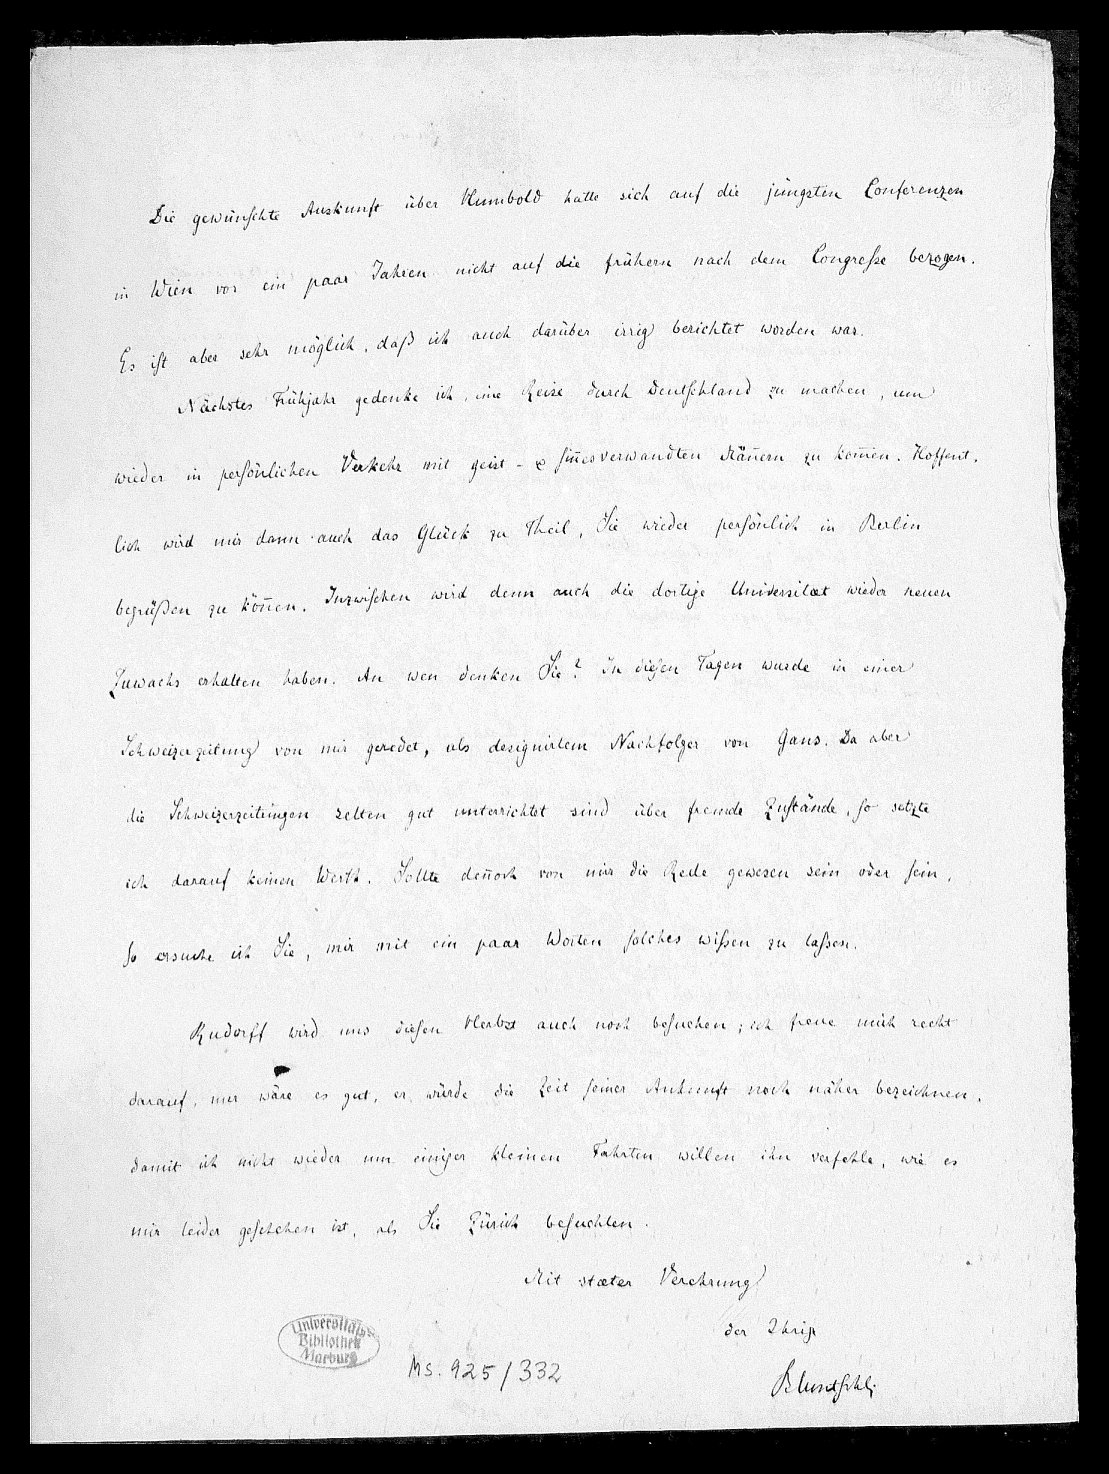 Die gewünſchte Auskunft über Humbold hatte sich auf die jüngsten Conferenzen
in Wien vor ein paar Jahren nicht auf die frühern nach dem Congreſse bezogen.
Es iſt aber sehr möglich, daß ich auch darüber irrig berichtet worden war.
Nächstes Frühjahr gedenke ich, eine Reise durch Deutſchland zu machen, um
wieder in perſönlichen Verkehr mit geist- & ſiñesverwandten Mäñern zu kom̄en. Hoffent,
lich wird mir dann auch das Glück zu Theil, Sie wieder perſönlich in Berlin
begrüßen zu köñen. Inzwiſchen wird denn auch die dortige Universitæt wieder neuen
Zuwachs erhalten haben. An wen denken Sie? In dieſen Tagen wurde in einer
Schweizerzeitung von mir geredet, als designirtem Nachfolger von Gans. Da aber
die Schweizerzeitungen selten gut unterrichtet sind über fremde Zuſtände, ſo setzte
ich darauf keinen Werth. Sollte deñoch von mir die Rede gewesen sein oder ſein,
ſo ersuche ich Sie, mir mit ein paar Worten ſolches wiſsen zu laſsen.
Rudorff wird uns dieſen Herbst auch noch beſuchen; ich freue mich recht
darauf, nur wäre es gut, er würde die Zeit ſeiner Ankunft noch näher bezeichnen,
damit ich nicht wieder um einiger kleinen Fahrten willen ihn verfehle, wie es
mir leider geſchehen ist, als Sie Zürich beſuchten.
Mit stæter Verehrung
der Ihrige
Bluntſchli
Universitäts-
Bibliothek
Marburg
Ms. 925/332